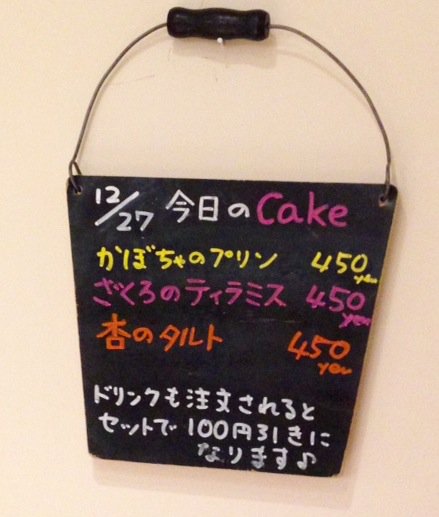 12/27 今日のCake
かぼちゃのプリン 450 yen
ざくろのティラミス 450 yen
杏のタルト 450 yen
ドリンクも注文されると
セットで100円引きに
なります♪